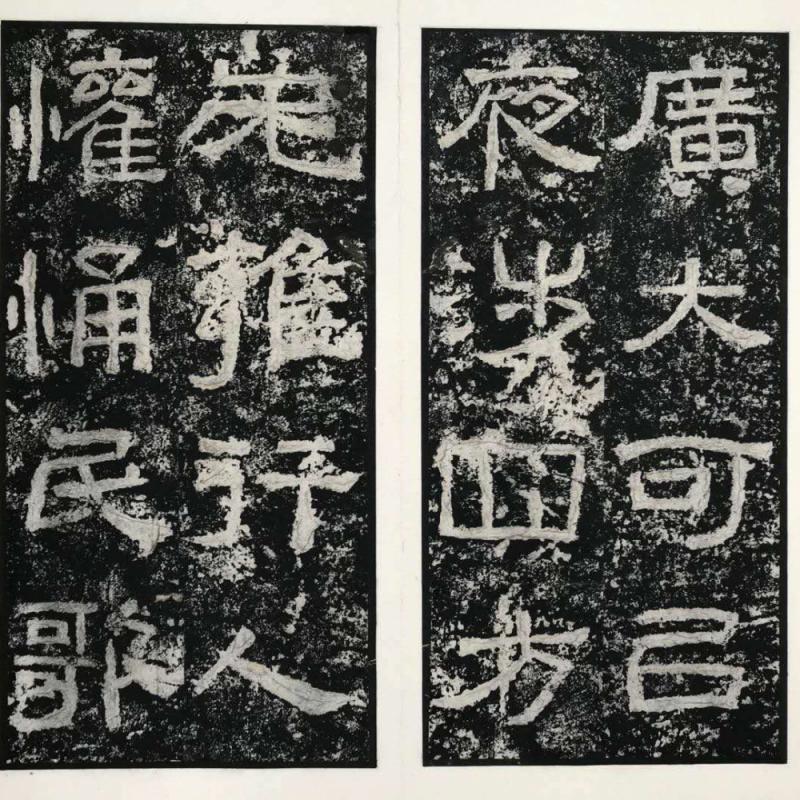 廣大可㠯
夜涉四方
无雍行人
懽悀民歌